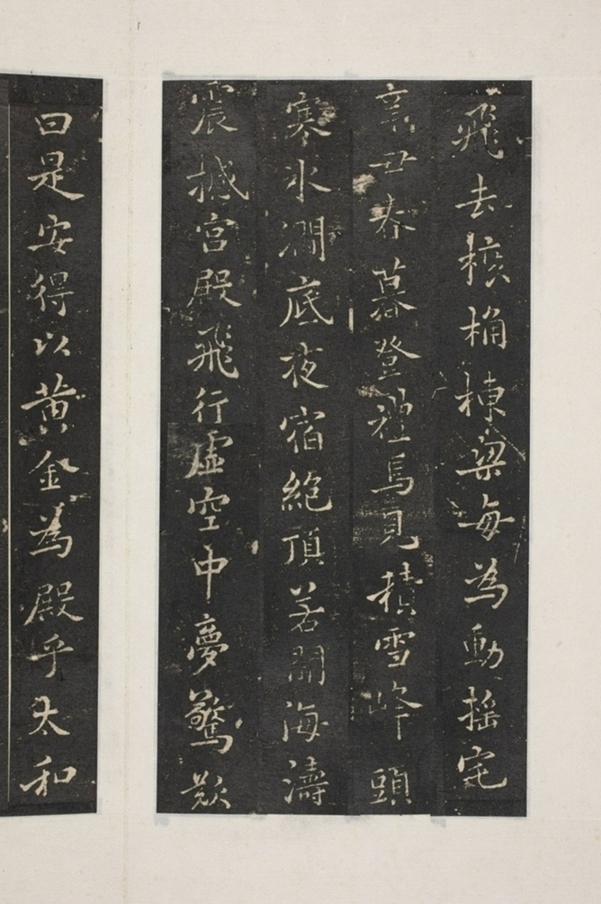 飛去榱桷棟梁每為動搖宅
辛丑春暮登禮焉見積雪峰頭
寒水澗底夜宿絕頂若聞海濤
震撼宮殿飛行虛空中夢驚歎
曰是安得以黃金為殿乎太和